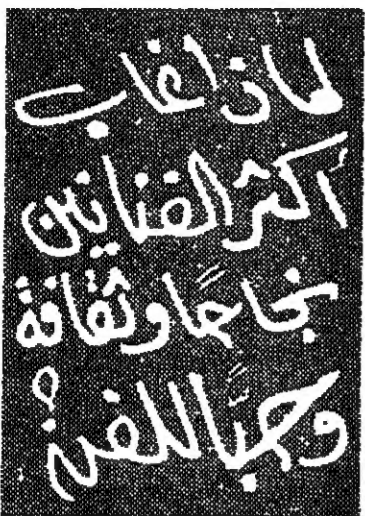 لماذا غاب
أكثر الفنانين
نجاحًا وثقافة
وحبًّا للفن؟